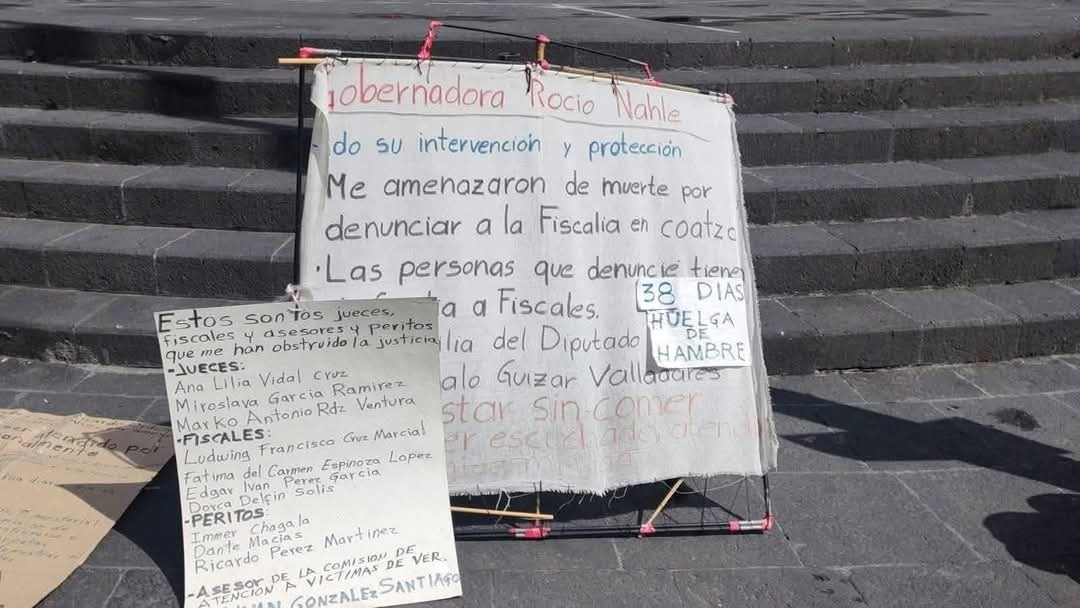 obernadora Rocio Nahle
do su intervención y protección
Me amenazaron de muerte por
denunciar a la Fiscalia en coatzc
·Las personas que denuncie tienen
a Fiscales.
lia del Diputado
alo Guizar Valladares
star sin comer
er escuchado, atendi
38 DIAS
HUELGA
DE
HAMBRE
Estos son los jueces,
fiscales y asesores y peritos
que me han obstruido la justicia
-JUECES:
Ana Lilia Vidal Cruz
Miroslava Garcia Ramirez
Marko Antonio Rdz Ventura
-FISCALES:
Ludwing Francisco Cruz Marcial
Fatima del Carmen Espinoza Lopez
Edgar Ivan Perez Garcia
Dorca Delfin Solis
-PERITOS:
Immer Chagala
Dante Macias
Ricardo Perez Martinez
-ASESOR DE LA COMISION DE
ATENCION A VICTIMAS DE VER.
GONZALEZ SANTIAGO